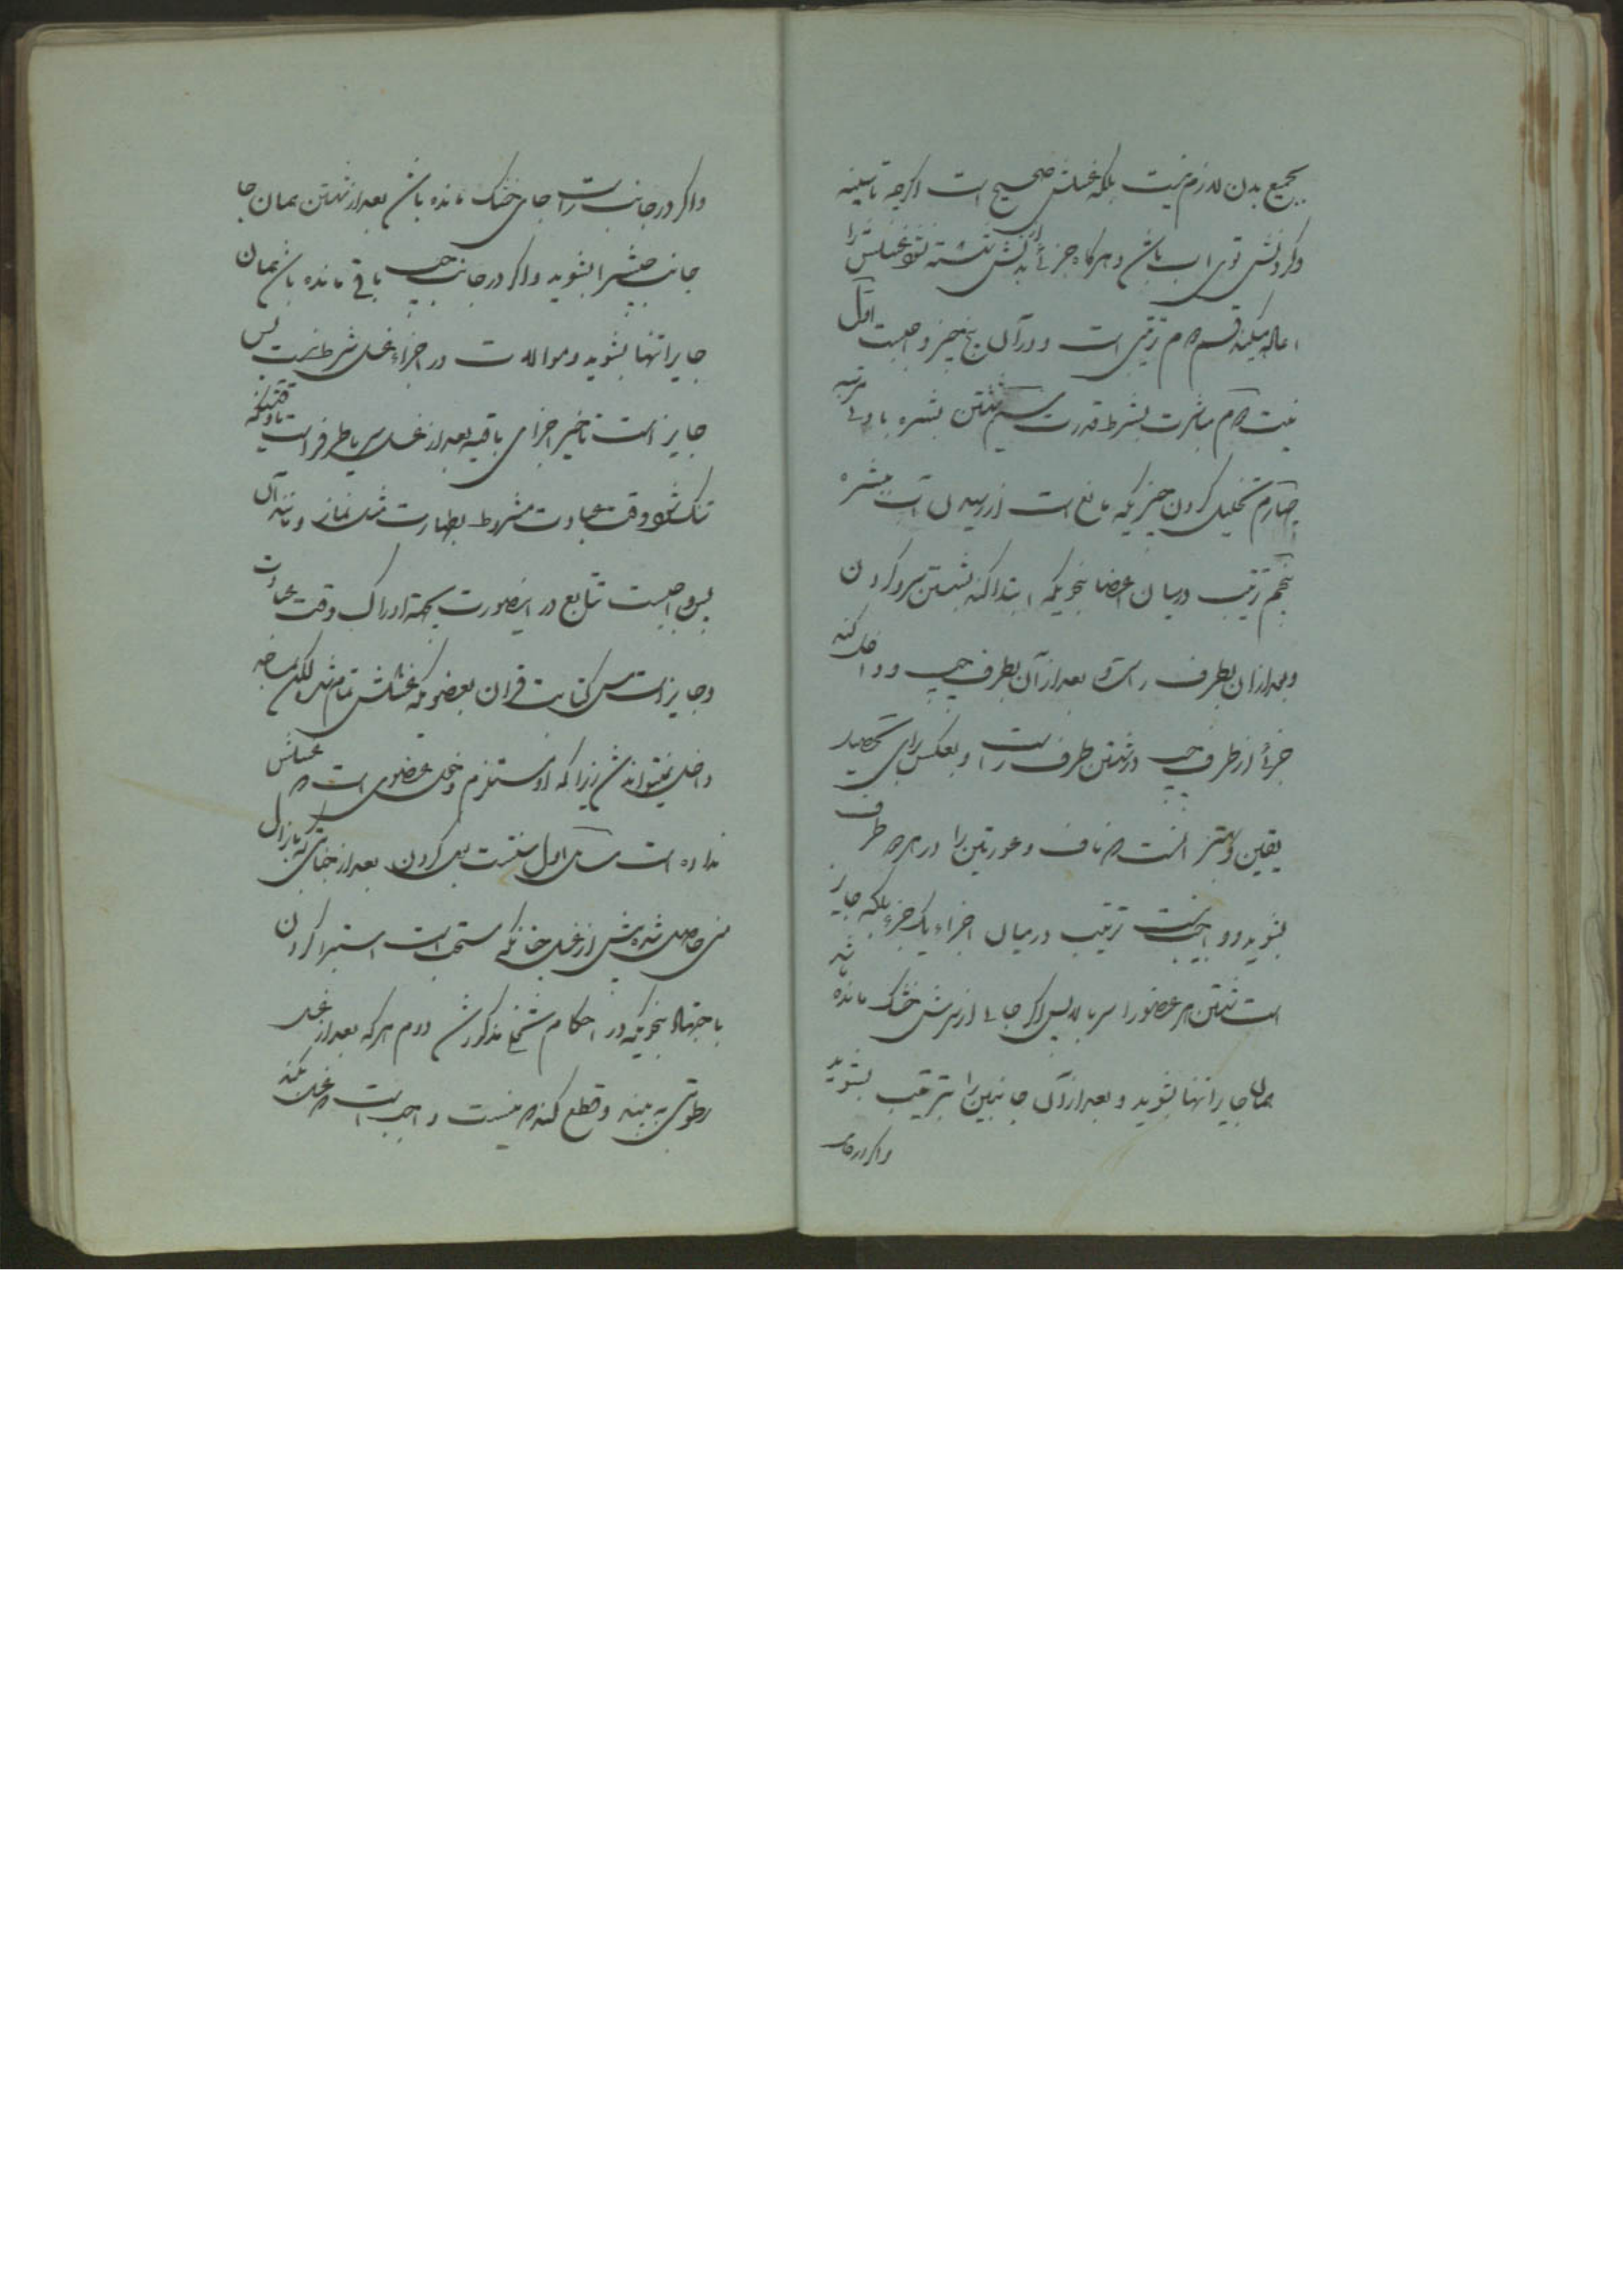 بجمیع بدن لازم نیست بلکه غسلش صحیح است اگرچه تا سینه
و گردنش توی آب باشد و هرگاه جزئی از بدنش شسته نشود غسلش را
اعاده میکند قسم دوم ترتیبی است و در آن پنج چیز واجبست اول
نیت دوم مباشرت بشرط قدرت سیم شستن بشره
چهارم تخلیل کردن چیزیکه مانع است از رسیدن آب ببشره
پنجم ترتیب درمیان اعضا بنحویکه ابتدا کند بشستن سر و گردن
و بعد از آن بطرف راست و بعد از آن بطرف چپ و داخل کند
جزئی از طرف چپ در شستن طرف راست و بعکس برای تحصیل
یقین و بهتر آنست که ناف و عورتین را در هر دو طرف
بشوید و واجب نیست ترتیب درمیان اجزاء یک جزء بلکه جایز
است شستن هر عضو را سر بالا پس اگر جائی از سرش خشک مانده باشد
همان جا را تنها بشوید و بعد از آن جانبین را بترتیب بشوید
و اگر در جانب
و اگر در جانب راست جای خشک مانده باشد بعد از شستن همان جا
جانب چپش را بشوید و اگر در جانب چپ باقی مانده باشد همان
جا را تنها بشوید و موالات در اجزاء غسل شرط نیست پس
جایز است تاخیر اجزای باقیه بعد از غسل سر یا طرف راست تا وقتیکه
تنگ شود وقت عبادت مشروط بطهارت مثل نماز و مانند آن
پس واجبست تتابع در اینصورت بجهة ادراک وقت عبادت
و جایز است مس کتابت قرآن بعضویکه غسلش تمام شد لکن بمساجد
داخل نمیتواند شد زیرا که او مستلزم دخول عضوی است که غسلش
نداده است مسائل اول سنت است بول کردن بعد از جنابتی که بانزال
منی حاصل شده پیش از غسل چنانکه مستحب است استبرا کردن
باجتهاد بنحویکه در احکام تخلی مذکور شد دوم هرکه بعد از غسل
رطوبتی به بیند و قطع کند که منیست واجب است که غسل بکند